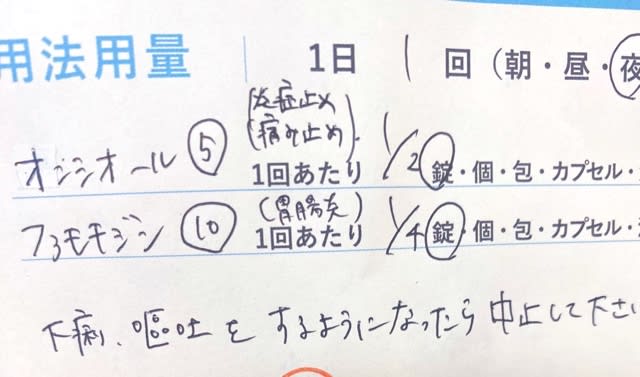 用法用量 1日 1 回（朝・昼・夜
(炎症止め
(痛み止め)
オンシオール ⑤ 1回あたり 1/2 錠・個・包・カプセル・
(胃腸炎)
ファモチジン ⑩ 1回あたり 1/4 錠・個・包・カプセル・
下痢、嘔吐をするようになったら中止して下さい